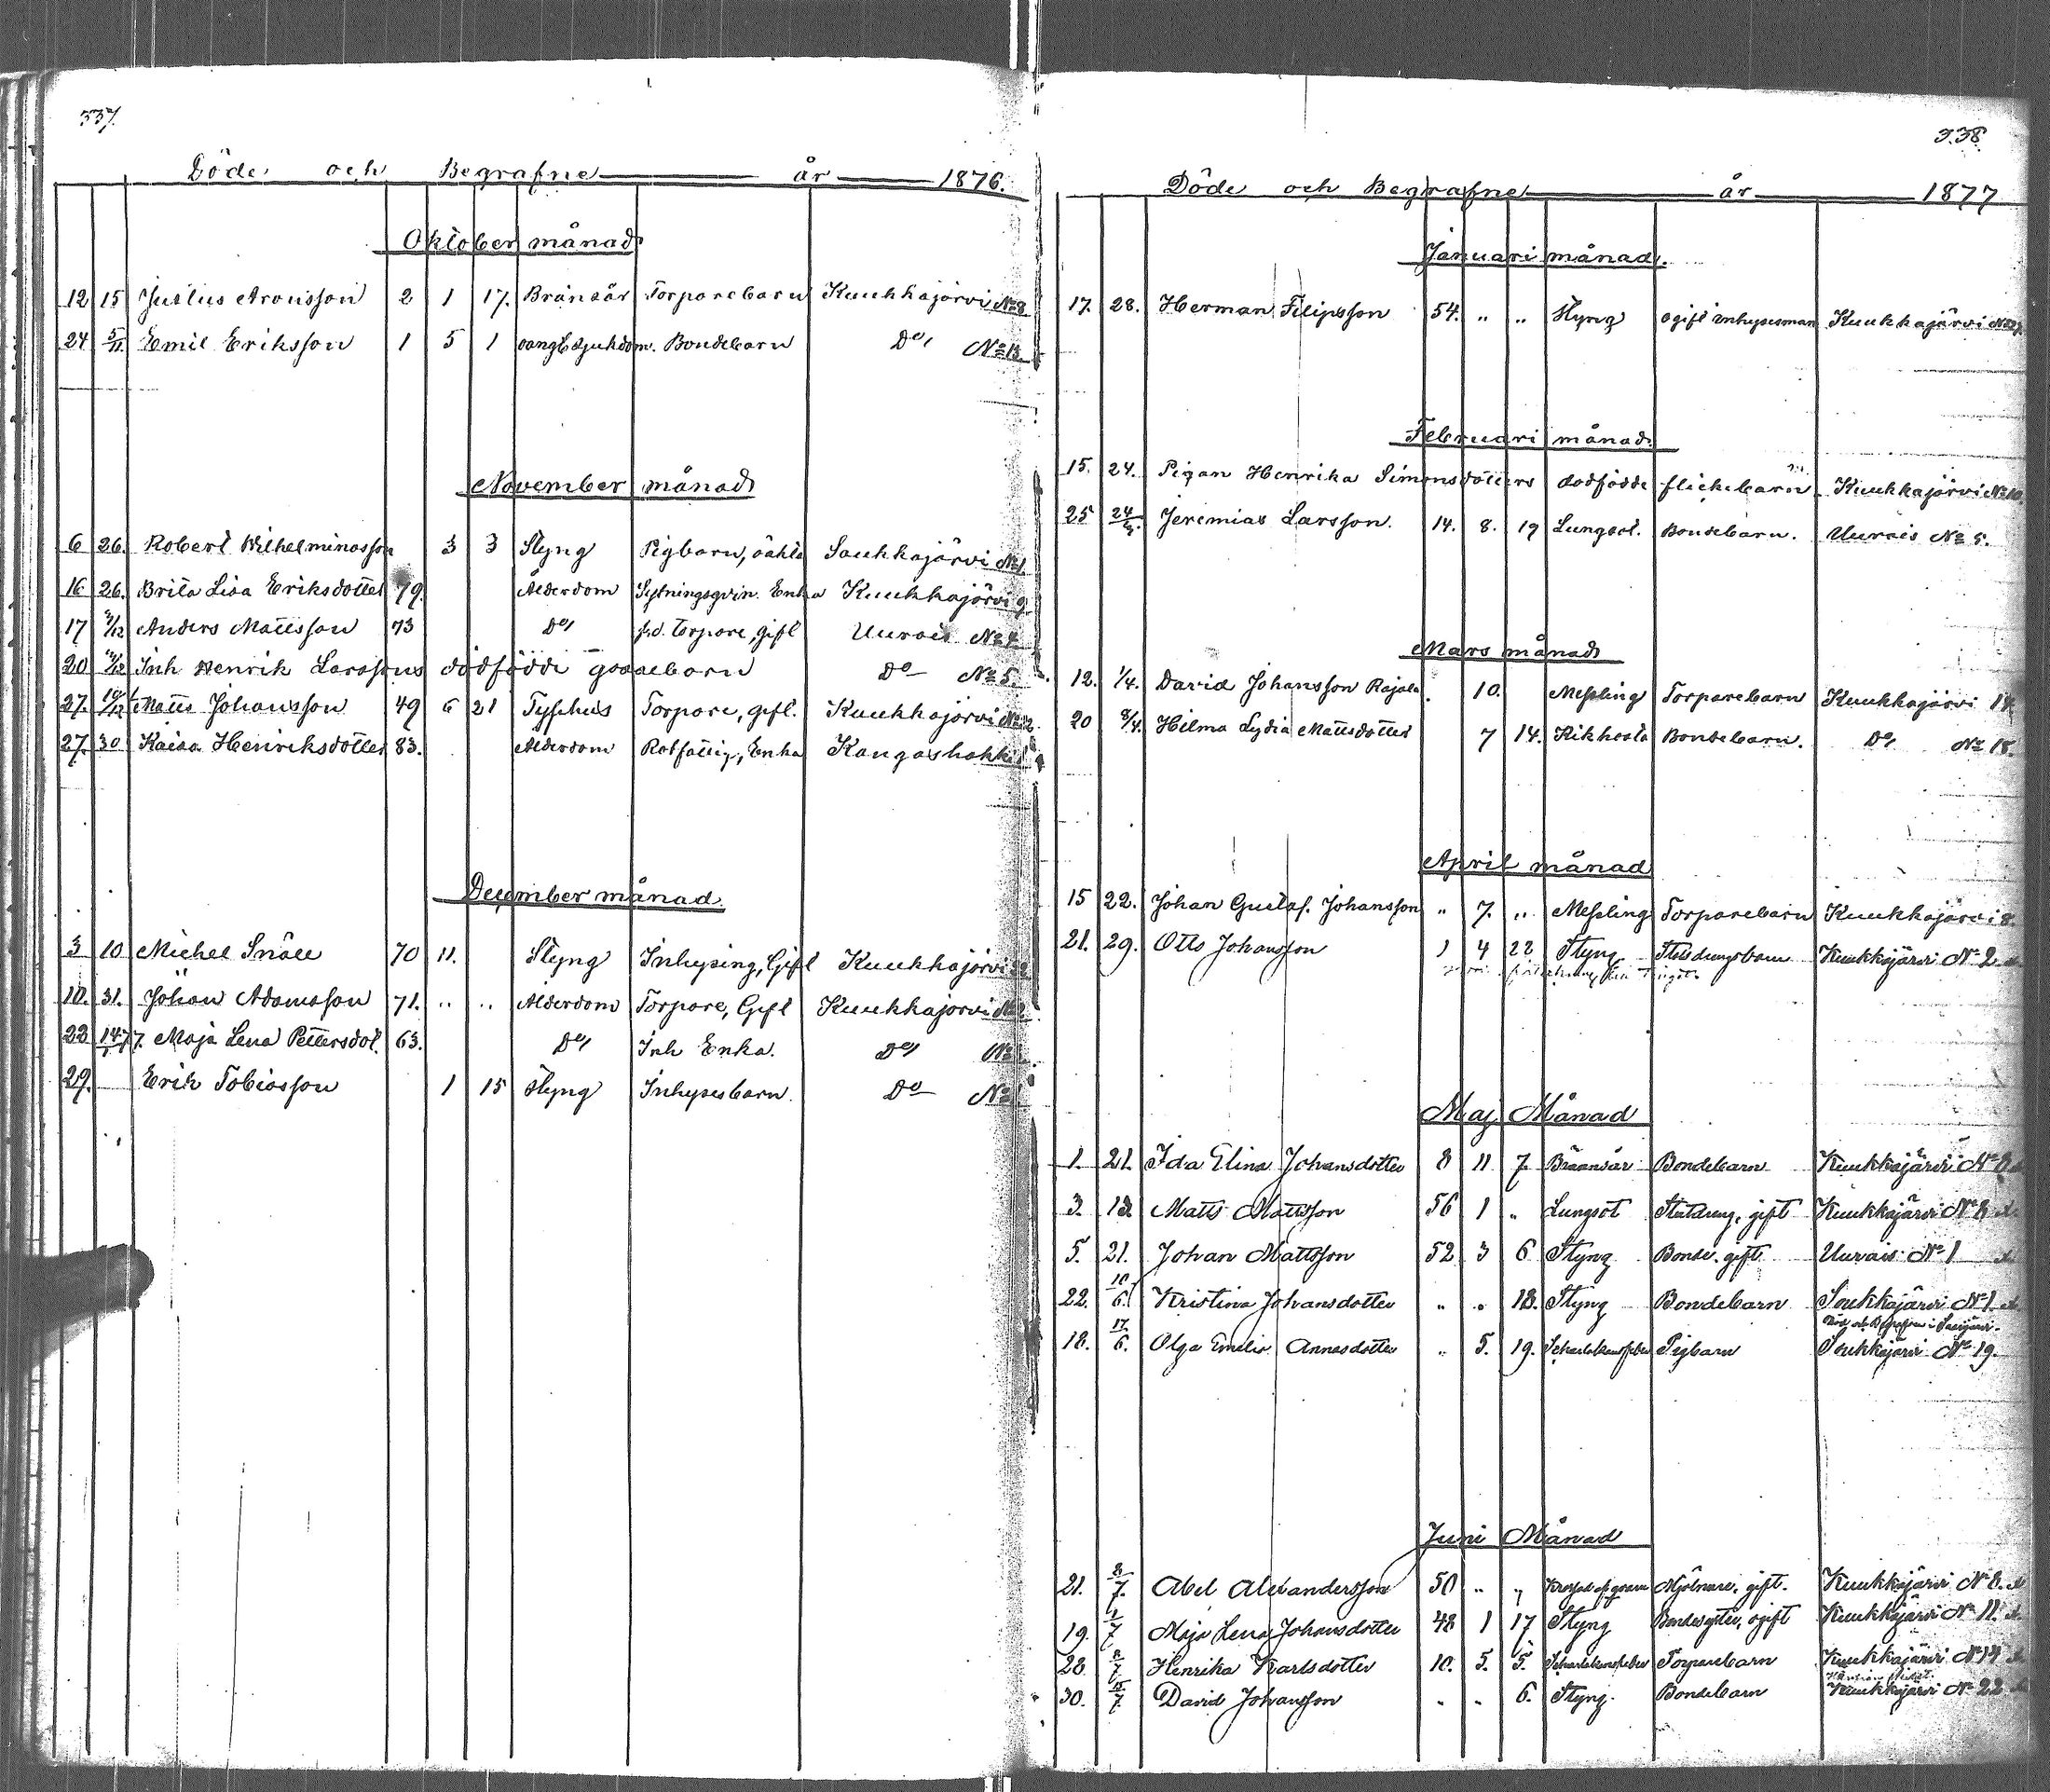 337.
Döde och Begrafne år 1876.
Oktober månad
12 15 Justus Aronsson 2 1 17. Bränsår Torparebarn Kuukkajärvi No 8
24 5/11 Emil Eriksson 1 5 1 Bondebarn Do No 13.
November månad
6 26. Robert Wilhelminasson 3 3 Styng Pigbarn, oäkta Saukkajärvi No 1.
16 26. Brita Lisa Eriksdotter 79. Ålderdom Sytningsqvin. Enka Kuukkajärvi 9.
17 Anders Mattsson 73 Do Torpare, gift Uurais No 4
20 Inh Henrik Larssons dödfödde gossebarn Do No 5.
27. 10/12 Matts Johansson 49 6 21 Typhus Torpare, gift. Kuukkajärvi
27. 30 Kaisa Henriksdotter 83. Ålderdom Rotfattig, Enka Kangashokki
December månad.
3 10 Michel Snäll 70 11. Styng Inhysing, Gift Kuukkajärvi
10. 31. Johan Adamsson 71. " " Ålderdom Torpare, Gift Kuukkajärvi No 2.
22 14/1 77. Maja Lena Pettersdot. 63. Do Inh Enka. Do
29. Erik Tobiasson 1 15 Styng Inhysesbarn. Do No 1.
338
Döde och Begrafne år 1877
Januari månad.
17. 28. Herman Filipsson 54. " " Styng ogift inhysesman Kuukkajärvi
Februari månad.
15. 24. Pigan Henrika Simonsdotters dödfödde flickebarn Kuukkajärvi No 10.
25 Jeremias Larsson. 14. 8. 19 Lungsot. Bondebarn. Uurais No 5.
Mars månad
12. 1/4. David Johansson Rajala 10. Messling Torparebarn Kuukkajärvi 14
20 8/4. Hilma Lydia Mattsdotter 7 14. Kikhosta Bondebarn. Do No 18.
April månad
15 22. Johan Gustaf. Johansson " 7. " Messling Torparebarn Kuukkajärvi 8.
21. 29. Otto Johansson 1 4 22 Styng Kuukkajärvi No 2.
Maj Månad
1. 21. Ida Elina Johansdotter 8 11 7. Brännsår Bondebarn Kuukkajärvi No 8
3. 13. Matts Mattsson 56 1 " Lungsot Statdreng, gift Kuukkajärvi No 8
5. 21. Johan Mattsson 52 3 6 Styng Bonde. gift Uurais No 1
22. 10/6. Kristina Johansdotter " " 18. Styng Bondebarn Soukkajärvi No 1.
18. 17/6. Olga Emilia Annasdotter " 5. 19. Scharlakansfeber Pigbarn Soukkajärvi No 19.
Juni Månad
21. 8/7. Abel Alexandersson 50 " " Mjölnare, gift. Kuukkajärvi No 8.
19. 1/7 Maja Lena Johansdotter 48 1 17 Styng ogift Kuukkajärvi No 11
28 8/7 Henrika Karlsdotter 10. 5. 5. Scharlakansfeber Torparebarn Kuukkajärvi No 14
30. 15/7. David Johansson " " 6. Styng. Bondebarn Kuukkajärvi No 22